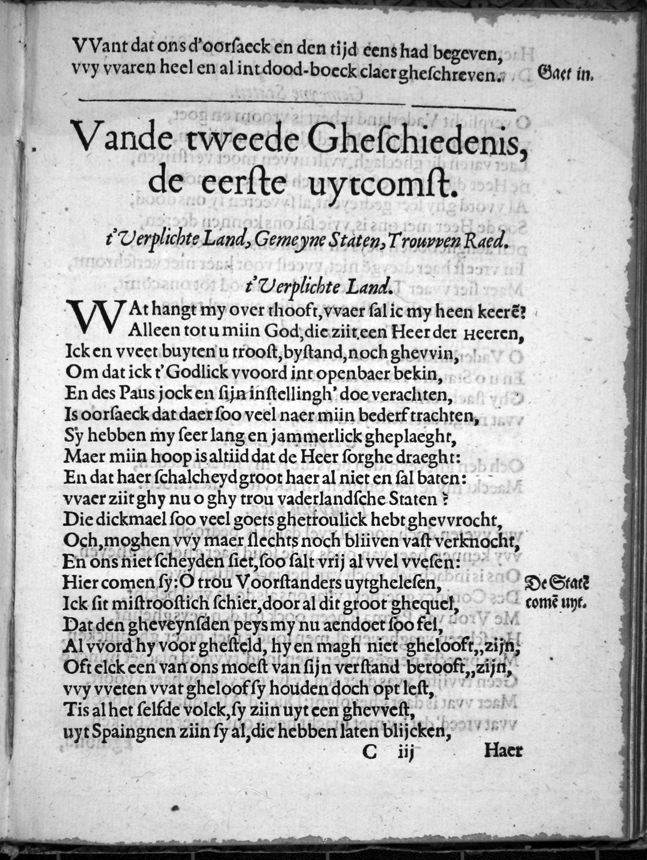 VVant dat ons d'oorsaeck en den tijd eens had begeven,
vvy vvaren heel en al int dood-boeck claer gheschreven. Gaet in.
Vande tweede Gheschiedenis,
de eerste uytcomst.
t'Verplichte Land, Gemeyne Staten, Trouvven Raed.
t'Verplichte Land.
WAt hangt my over thooft, vvaer sal ic my heen keerē?
Alleen tot u miin God, die ziit een Heer der Heeren,
Ick en vveet buyten u troost, bystand, noch ghevvin,
Om dat ick t'Godlick vvoord int openbaer bekin,
En des Paus jock en sijn instellingh' doe verachten,
Is oorsaeck dat daer soo veel naer miin bederf trachten,
Sy hebben my seer lang en jammerlick gheplaeght,
Maer miin hoop is altiid dat de Heer sorghe draeght:
En dat haer schalcheyd groot haer al niet en sal baten:
vvaer ziit ghy nu o ghy trou vaderlandsche Staten?
Die dickmael soo veel goets ghetroulick hebt ghevvrocht,
Och, moghen vvy maer slechts noch bliiven vast verknocht,
En ons niet scheyden siet, soo salt vrij al vvel vvesen:
Hier comen sy: O trou Voorstanders uytghelesen, De Statē
Ick sit mistroostich schier, door al dit groot ghequel, comē uyt.
Dat den gheveynsden peys my nu aendoet soo fel,
Al vvord hy voor ghesteld, hy en magh niet ghelooft,,zijn,
Oft elck een van ons moest van sijn verstand berooft,,zijn,
vvy vveten vvat gheloof sy houden doch opt lest,
Tis al het selfde volck, sy ziin uyt een ghevvest,
uyt Spaingnen ziin sy al, die hebben laten blijcken,
C iij Haer